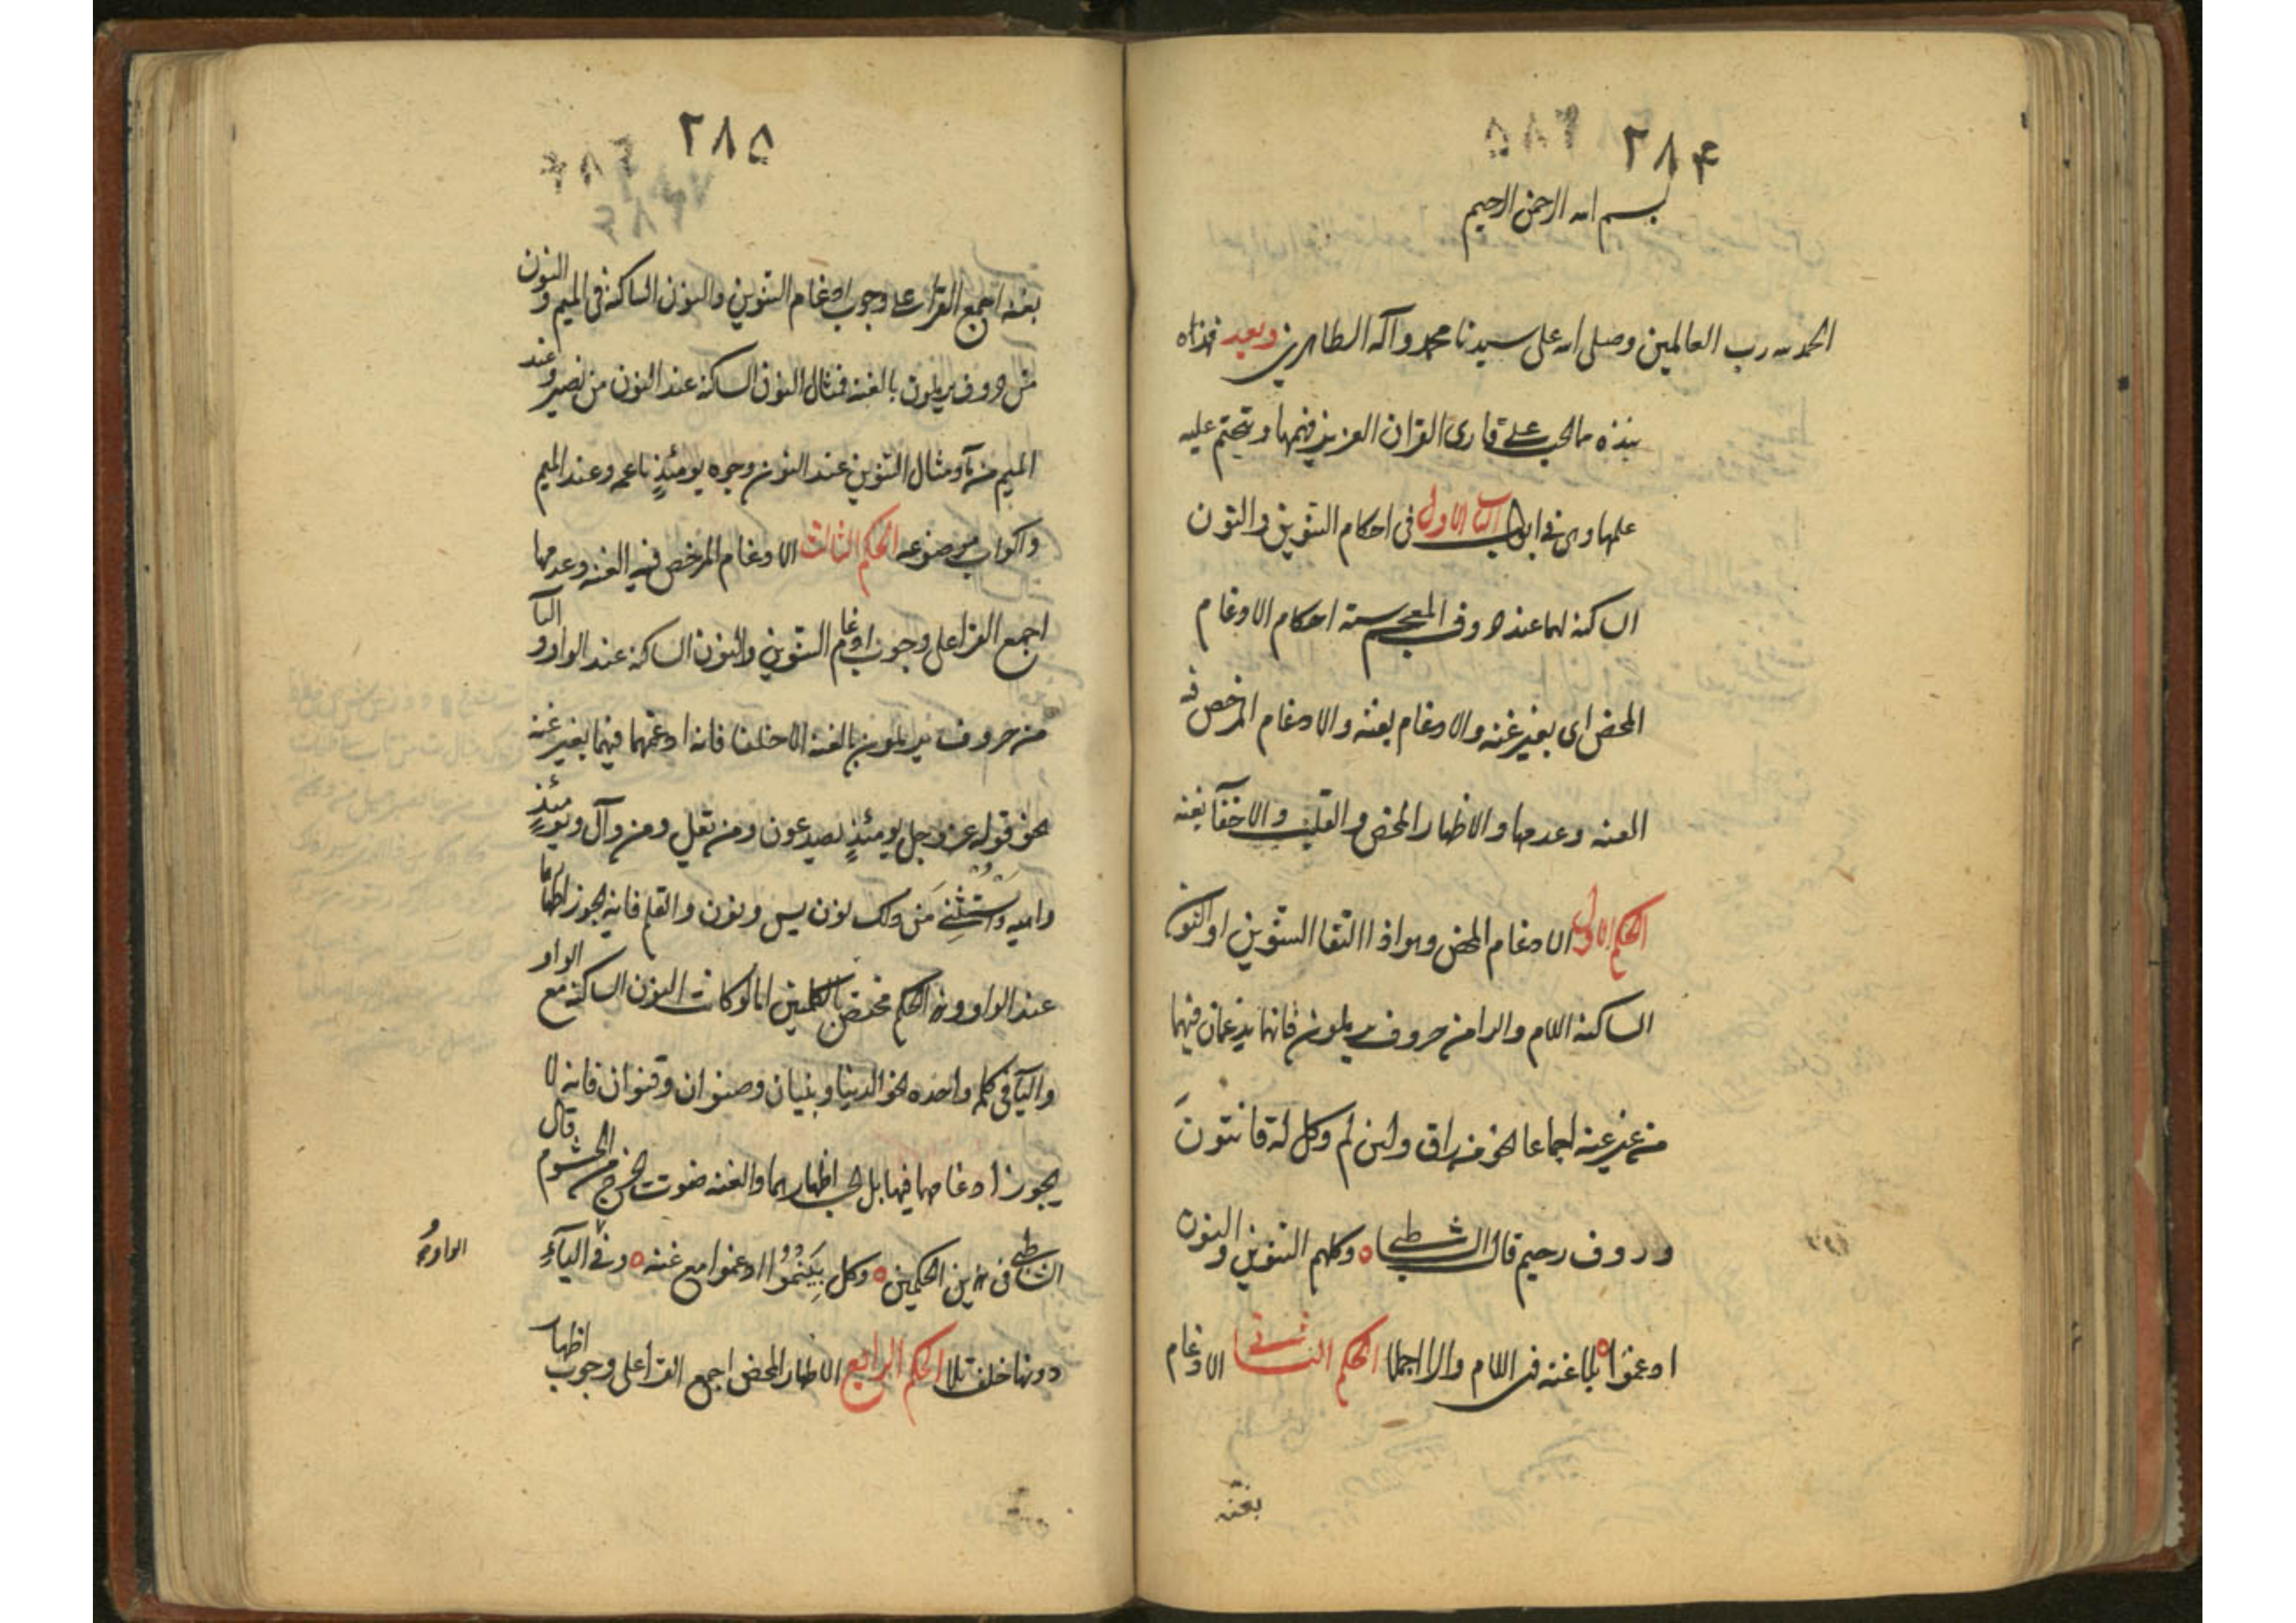 ٢٨۴
بسم الله الرحمن الرحيم
الحمد لله رب العالمين وصلى الله على سيدنا محمد وآله الطاهرين وبعد فهذه
نبذه مما يجب على قارئ القران العزيز فهمها ويتحتم عليه
علمها وهى فى ابواب الباب الاول فى احكام التنوين والنون
الساكنه لهما عند حروف المعجم ستة احكام الادغام
المحض اى بغير غنه والادغام بغنه والادغام المرخص فيه
الغنه وعدمها والاظهار المحض والقلب والاخفآ بغنه
الحكم الاول الادغام المحض وهو اذا التقا التنوين او النون
الساكنه اللام والرا من حروف يرملون فانهما يدغمان فيهما
من غير غنه اجماعا نحو من راق ولئن لم وكل له قانتون
وروف رحيم قال الشاطبى ه وكلهم التنوين والنون
ادغموا ه بلا غنه فى اللام والرا اجملا الحكم الثانى الادغام
بغنه
٢٨۵
بغنه اجمع القرا على وجوب ادغام التنوين والنون الساكنه فى الميم والنون
من حروف يرملون بالغنه فمثال النون الساكنه عند النون من نصير وعند
الميم من مآ ومثال التنوين عند النون وجوه يومئذٍ ناعمه وعند الميم
واكواب موضوعه الحكم الثالث الادغام المرخص فيه الغنه وعدمها
اجمع القرا على وجوب ادغام التنوين والنون الساكنه عند الواو واليآ
من حروف يرملون بالغنه الا خلفا فانه ادغمهما فيهما بغير غنه
نحو قوله عز وجل يومئذٍ يصدعون ومن يقل ومن وآل ويومئذٍ
واهيه ويُستثنى من ذلك نون يس ونون والقلم فانه يجوز اظهارها
عند الواو وهذا الحكم مختص بالكلمتين اما لو كانت النون الساكنه مع الواو
واليآ فى كلمه واحده نحو الدنيا وبنيان وصنوان وقنوان فانه لا
يجوز ادغامها فيها بل يجب اظهارهما والغنه صوت يخرج من الخيشوم قال
الشاطبى فى هذين الحكمين ه وكل بِيَنْمُو ادغموا مع غنه ه وفى اليآءِ
الواو
دونها خلف تلا الحكم الرابع الاظهار المحض اجمع القرا على وجوب اظهار